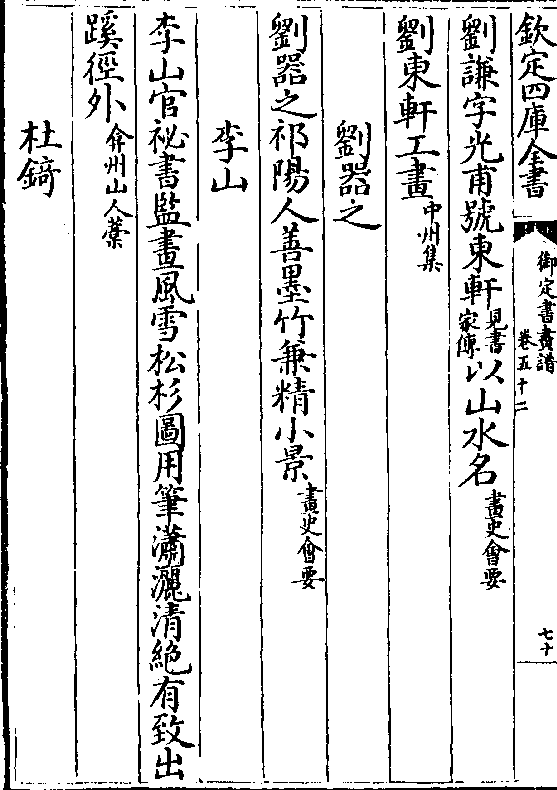 欽定四庫全書
御定書畫譜
卷五十二
七十
劉謙字光甫號東軒見書家傳以山水名畫史會要
劉東軒工畫中州集
劉器之
劉器之祁陽人善墨竹兼精小景畫史會要
李山
李山官祕書監畫風雪松杉圖用筆瀟灑清絶有致出
蹊徑外弇州山人藁
杜錡